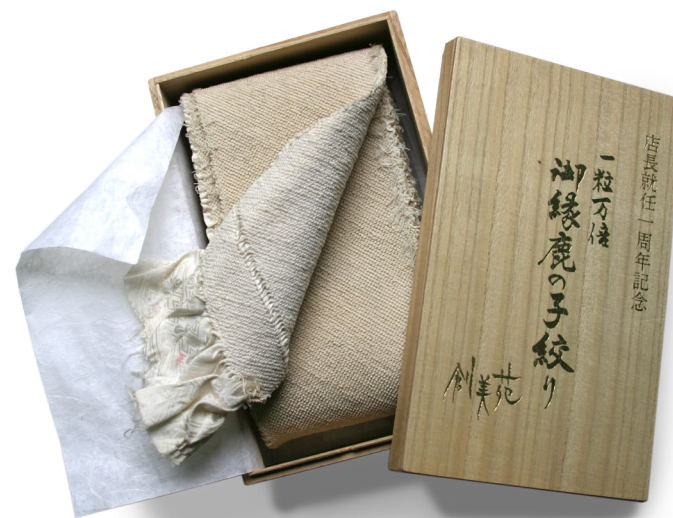 店長就任一周年記念
一粒万倍
御縁鹿の子絞り
創美苑